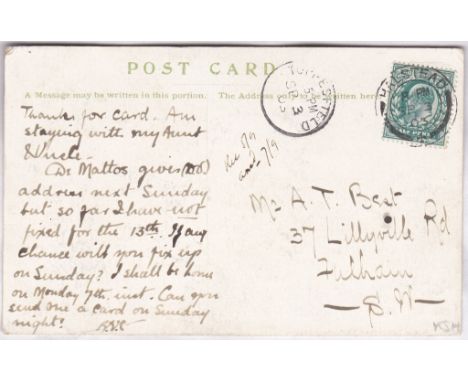 POST CARD
A Message may be written in this portion.
The Address written here
Thanks for card. Am
staying with my Aunt
& Uncle.
De Mattos gives
address next Sunday
but so far I have not
fixed for the 13th. If any
chance will you fix up
on Sunday? I shall be home
on Monday 7th. inst. Can you
send me a card on Sunday
night?
TOPPESFIELD
HALSTEAD
Mr A. T. Best
37 Lillyville Rd
Fulham
— S. W —
KSM